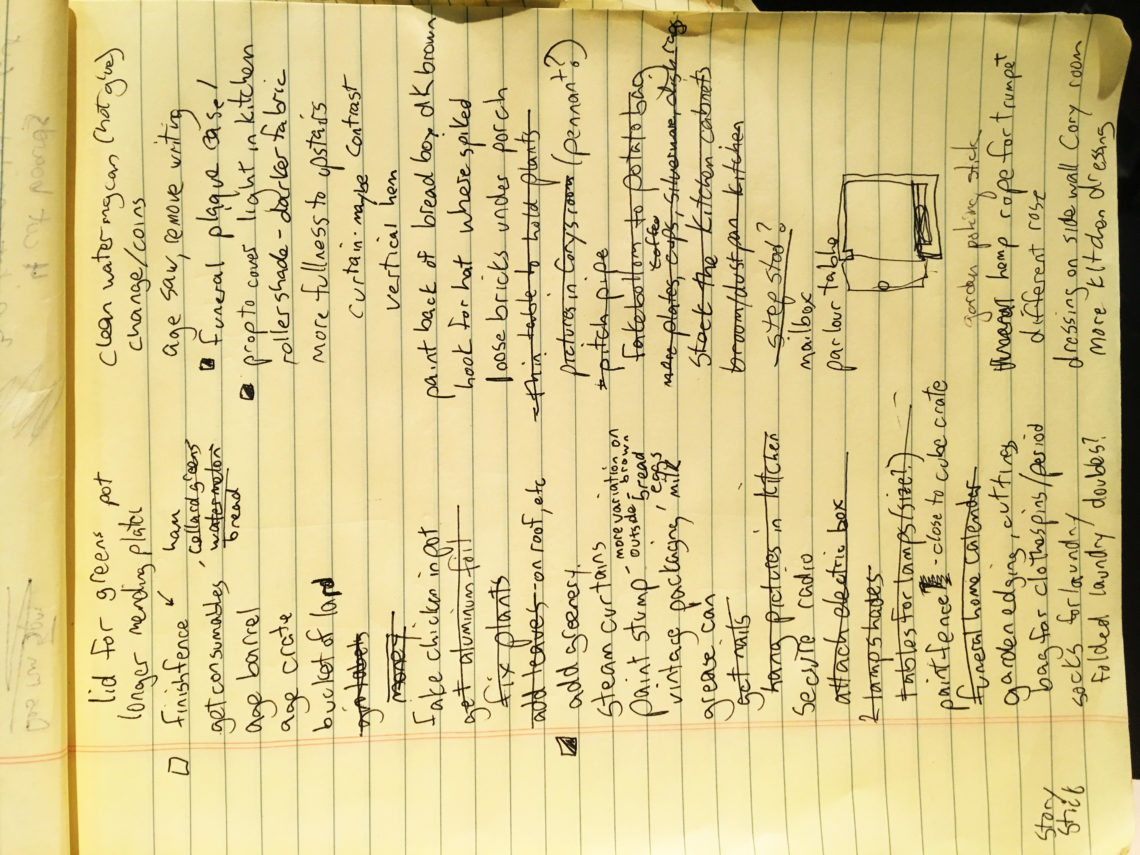 lid for greens pot
longer mending platcl
finish fence
get consumables, ham
collard greens
watermelon
bread
age barrel
age crate
bucket of lard
money
fake chicken in pot
get aluminum foil
fix plants
add leaves - on roof, etc
add greenery
steam curtains
paint stump - more variation on
outside brown
vintage packaging, bread
eggs
milk
grease can
get nails
hang pictures in kitchen
secure radio
attach electric box
2 lampshades
tables for lamps (size?)
paint fence - close to cube crate
funeral home calender
garden edging, cuttings
bag for clothespins/period
socks for laundry
folded laundry doubles?
story
stick
clean watering can (hot glue)
change/coins
age saw, remove writing
funeral plaque ease/
prop to cover light in kitchen
roller shade - darker fabric
more fullness to upstairs
curtain - maybe contrast
vertical hem
paint back of bread box dk brown
hook for hat where spiked
loose bricks under porch
thin table to hold plants
pictures in Corys room (pennant?)
pitch pipe
fake bottom to potato bag
more plates, coffee cups, silverware, dish rags
stock the kitchen cabinets
broom/dustpan kitchen
step stool?
mailbox
parlour table
garden poking stick
hemp rope for trumpet
different rose
dressing on side wall Cory room
more kitchen dressing